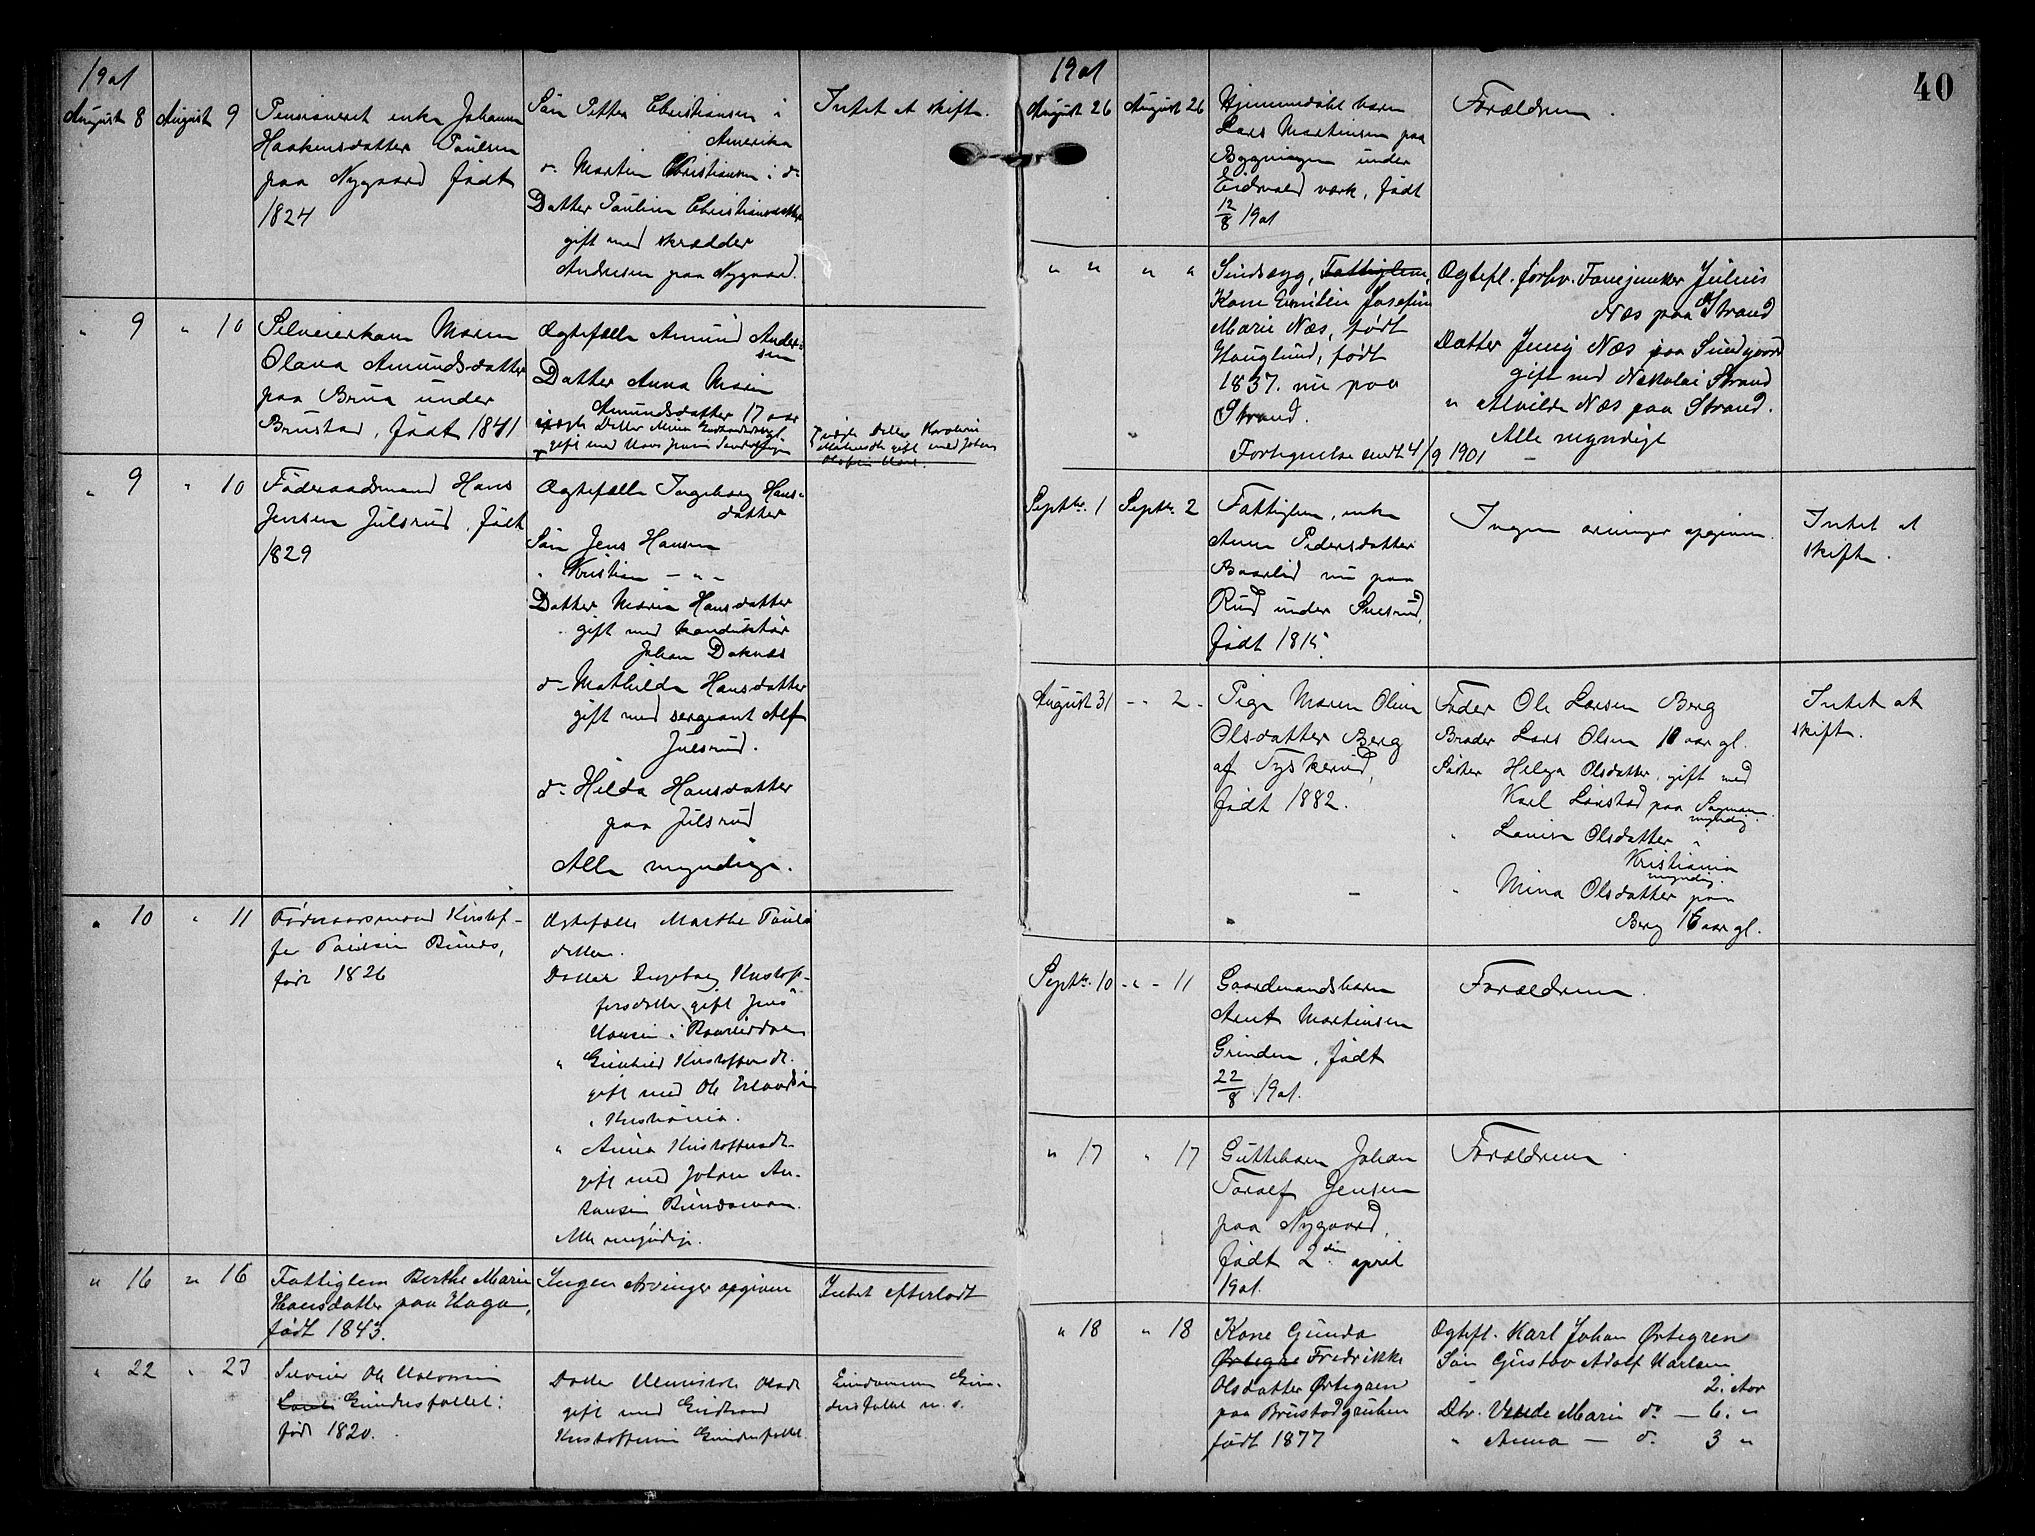 1901
August 8 August 9 Pensioneret enke Johanne
Haakensdatter Paulsen
paa Nygaard født
1824
Søn Petter Christiansen i
Amerika
do Martin Christiansen i do
Datter Pauline Christiansdatter
gift med skrædder
Andresen paa Nygaard.
Intet at skifte.
" 9 " 10 Selveierkone Maren
Olava Amundsdatter
paa Brua under
Brustad, født 1841
Ægtefælle Amund Ander-
sen
Datter Anna Marie
Amundsdatter 17 aar
gift med Hans Jensen
uægte Datter Karoline
gift med Johan
" 9 " 10 Føderaadsmand Hans
Jensen Julsrud, født
1829
Ægtefælle Ingeborg Hans-
datter
Søn Jens Hansen
" Kristian — " —
Datter Maria Hansdatter
gift med konduktør
Johan Doknæs
do Mathilde Hansdatter
gift med sergeant Alf
Julsrud.
do Hilda Hansdatter
paa Julsrud
Alle myndige.
" 10 " 11 Føderaadsmand Kristof-
fer Paulsen Bunæs,
født 1826
Ægtefælle Marthe Pauls
datter.
Datter Ingeborg Kristof-
fersdatter gift Jens
Hansen i
" Gunhild Kristoffersdt.
gift med Ole Erlandsen
i Kristiania.
" Anna Kristoffersdt.
gift med Johan An-
Alle myndige.
" 16 " 16 Fattiglem Berthe Marie
Hansdatter paa Haga,
født 1843.
Ingen Arvinger opgivne
Intet efterladt
" 22 " 23 Selveier Ole Halvorsen
Gundersfallet
født 1820.
Datter Olsdt
gift med Gudbrand
Kristoffersen Gundersfallet
Eiendommen Gun-
dersfallet m. v.
40
1901
August 26 August 26 Hjemmedøbt barn
Lars Martinsen paa
Bygningen under
Eidsvold værk, født
12/8 1901
Forældrene.
" " " " Sindssyg, Fattiglem,
Kone Emilie Josefine
Marie Næs, født
Hauglund, født
1837. nu paa
Strand.
Fortegnelse sendt 4/9 1901
Ægtefl. forhv. Fanejunker Julius
Næs paa Strand
Datter Jenny Næs paa Sundgaard
gift med Nikolai Strand
" Alvilde Næs paa Strand.
Alle myndige
Septbr. 1 Septbr. 2 Fattiglem, enke
Anne Pedersdatter
Baarlid nu paa
Rud under Susrud,
født 1815.
Ingen arvinger opgivne.
Intet at
skifte.
August 31 - " 2 - Pige Maren Oline
Olsdatter Berg
af Tyskerud,
født 1882.
Fader Ole Larsen Berg
Broder Lars Olsen 10 aar gl.
Søster Helga Olsdatter, gift med
Karl Lønstad paa Sagmoen
myndig.
" Lovise Olsdatter i
Kristiania
myndig.
" Mina Olsdatter paa
Berg 16 aar gl.
Intet at
skifte.
Septbr. 10 - " - 11 Gaardmandsbarn
Arnt Martinsen
Grinden, født
22/8 1901.
Forældrene.
" 17 " 17 Guttebarn Johan
Toralf Jensen
paa Nygaard,
født 2den april
1901.
Forældrene.
" 18 " 18 Kone Gunda
Ørtegre Fredrikke
Olsdatter Ørtegren
paa Brustadgruben
født 1877
Ægtefl. Karl Johan Ørtegren
Søn Gustav Adolf Karlsen
2. Aar
Dtr. Marie do — 6. "
" Anna — do. 3 "